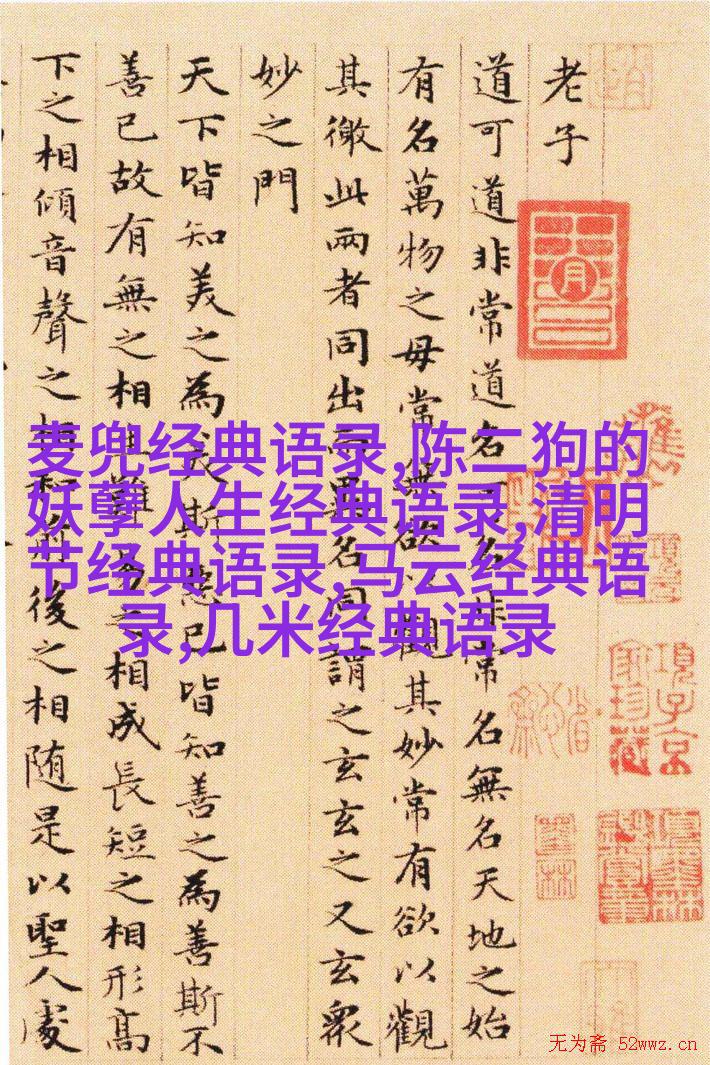 老子
道可道非常道名可名非常名無名天地之始
有名萬物之母常無欲以觀其妙常有欲以觀
其徼此兩者同出而異名同謂之玄玄之又玄眾
妙之門
天下皆知美之為美斯惡已皆知善之為善斯不
善已故有無之相生難易之相成長短之相形高
下之相傾音聲之相和前後之相随是以聖人處
麦兜经典语录,陈二狗的
妖孽人生经典语录,清明
节经典语录,马云经典语
录,几米经典语录
項子京
家珍藏
无为斋 52wwz.cn